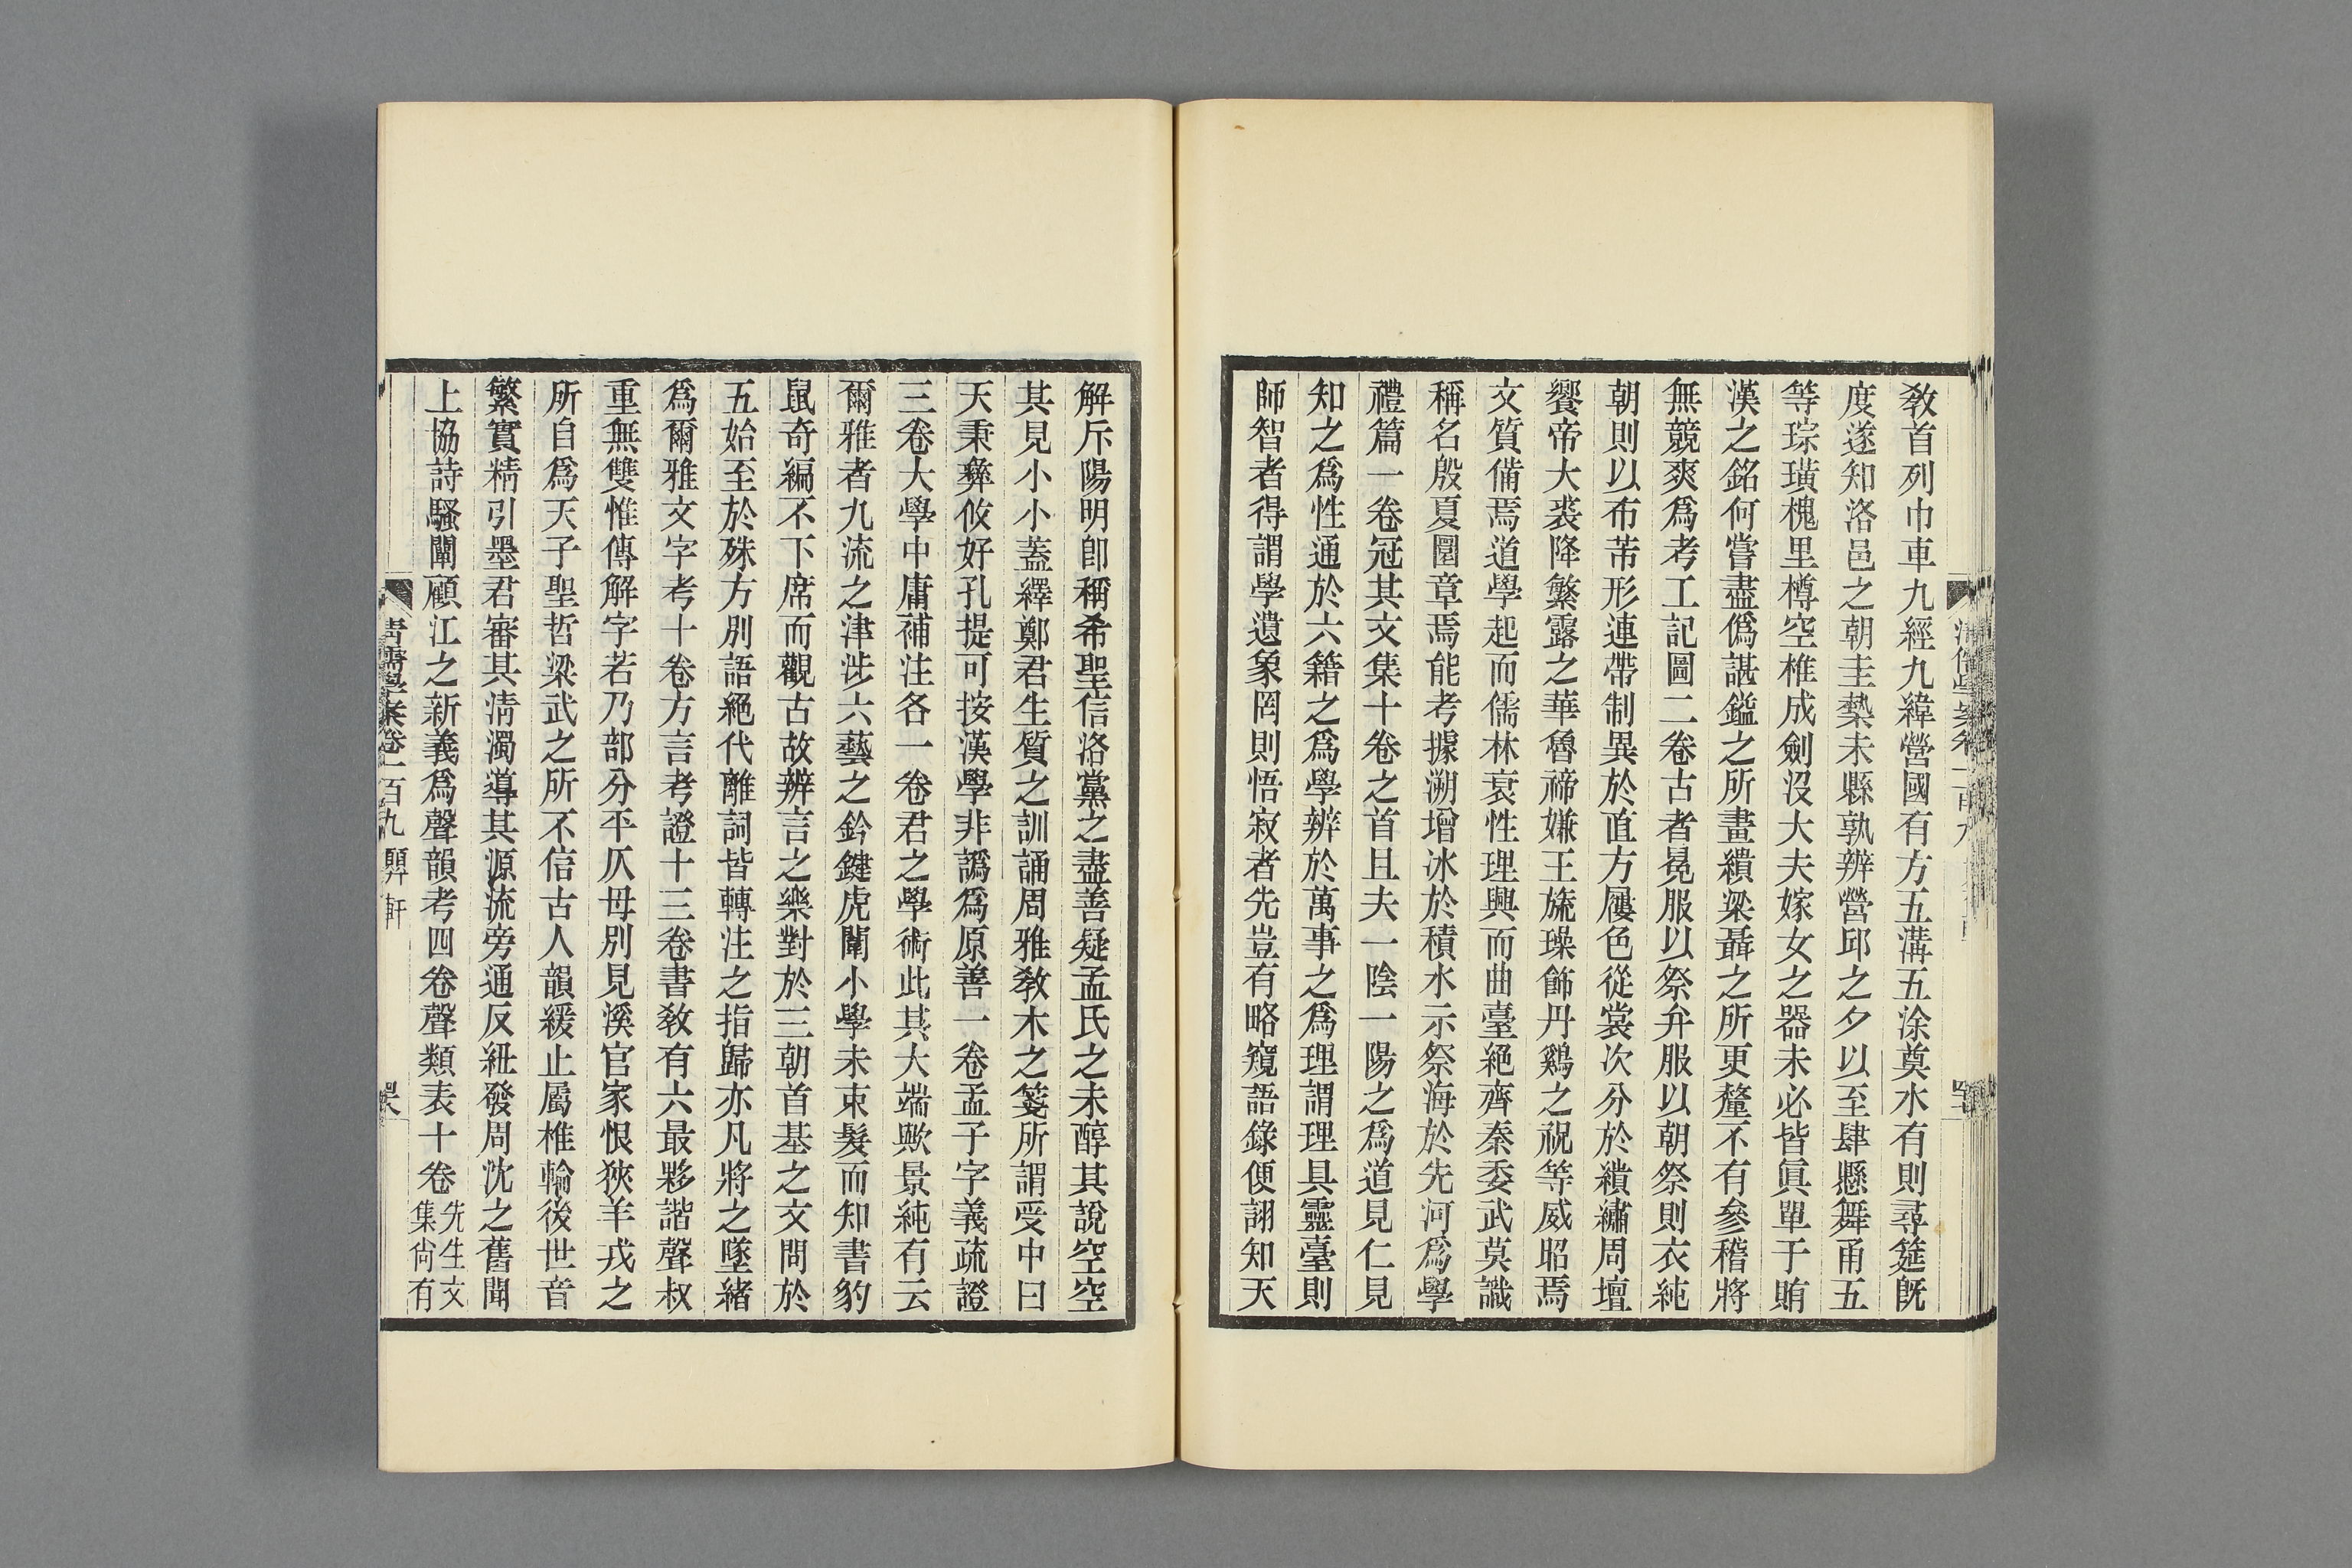 教首列巾車九經九緯營國有方五溝五涂奠水有則尋筵旣
度遂知洛邑之朝圭槷未縣孰辨營邱之夕以至肆懸舞甬五
等琮璜槐里樽空椎成劍沒大夫嫁女之器未必皆眞單于賄
漢之銘何嘗盡僞諶鎰之所畫繢梁聶之所更釐不有參稽將
無競爽爲考工記圖二卷古者冕服以祭弁服以朝祭則衣純
朝則以布芾形連帶制異於直方屨色從裳次分於繢繡周壇
饗帝大裘降繁露之華魯禘嫌王旒璪飾丹雞之祝等威昭焉
文質備焉道學起而儒林衰性理興而曲臺絕齊秦委武莫識
稱名殷夏圜章焉能考據溯增冰於積水示祭海於先河爲學
禮篇一卷冠其文集十卷之首且夫一陰一陽之爲道見仁見
知之爲性通於六籍之爲學辨於萬事之爲理謂理具靈臺則
師智者得謂學遺象罔則悟寂者先豈有略窺語錄便詡知天
解斥陽明卽稱希聖信洛黨之盡善疑孟氏之未醇其說空空
其見小小蓋繹鄭君生質之訓誦周雅教木之箋所謂受中曰
天秉彝攸好孔提可按漢學非譌爲原善一卷孟子字義疏證
三卷大學中庸補注各一卷君之學術此其大端歟景純有云
爾雅者九流之津涉六藝之鈐鍵虎闈小學未束髮而知書豹
鼠奇編不下席而觀古故辨言之樂對於三朝首基之文問於
五始至於殊方別語絕代離詞皆轉注之指歸亦凡將之墜緒
爲爾雅文字考十卷方言考證十三卷書敎有六最夥諧聲叔
重無雙惟傳解字若乃部分平仄母別見溪官家恨狹羊戎之
所自爲天子聖哲梁武之所不信古人韻緩止屬椎輪後世音
繁實精引墨君審其淸濁導其源流旁通反紐發周沈之舊聞
上協詩騷闡顧江之新義爲聲韻考四卷聲類表十卷先生文
集尙有
清儒學案卷一百九 顨軒